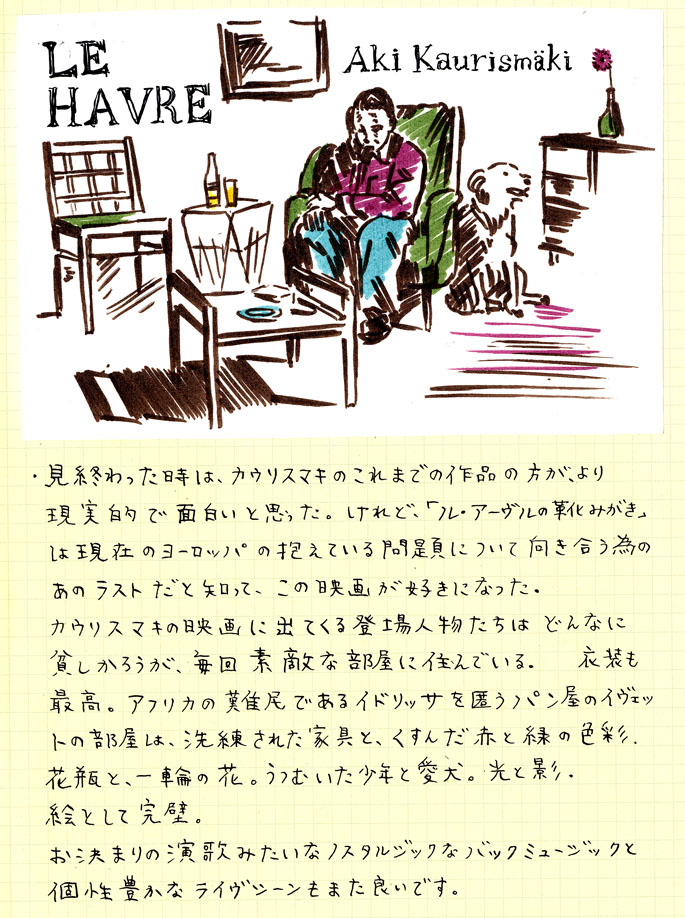 LE
HAVRE
Aki Kaurismäki
・見終わった時は、カウリスマキのこれまでの作品の方が、より
現実的で面白いと思った。けれど、「ル・アーヴルの靴みがき」
は現在のヨーロッパの抱えている問題について向き合う為の
あのラストだと知って、この映画が好きになった。
カウリスマキの映画に出てくる登場人物たちはどんなに
貧しかろうが、毎回素敵な部屋に住んでいる。 衣装も
最高。アフリカの難民であるイドリッサを匿うパン屋のイヴェッ
トの部屋は、洗練された家具と、くすんだ赤と緑の色彩.
花瓶と、一輪の花。うつむいた少年と愛犬。光と影.
絵として完璧。
お決まりの演歌みたいなノスタルジックなバックミュージックと
個性豊かなライヴシーンもまた良いです。